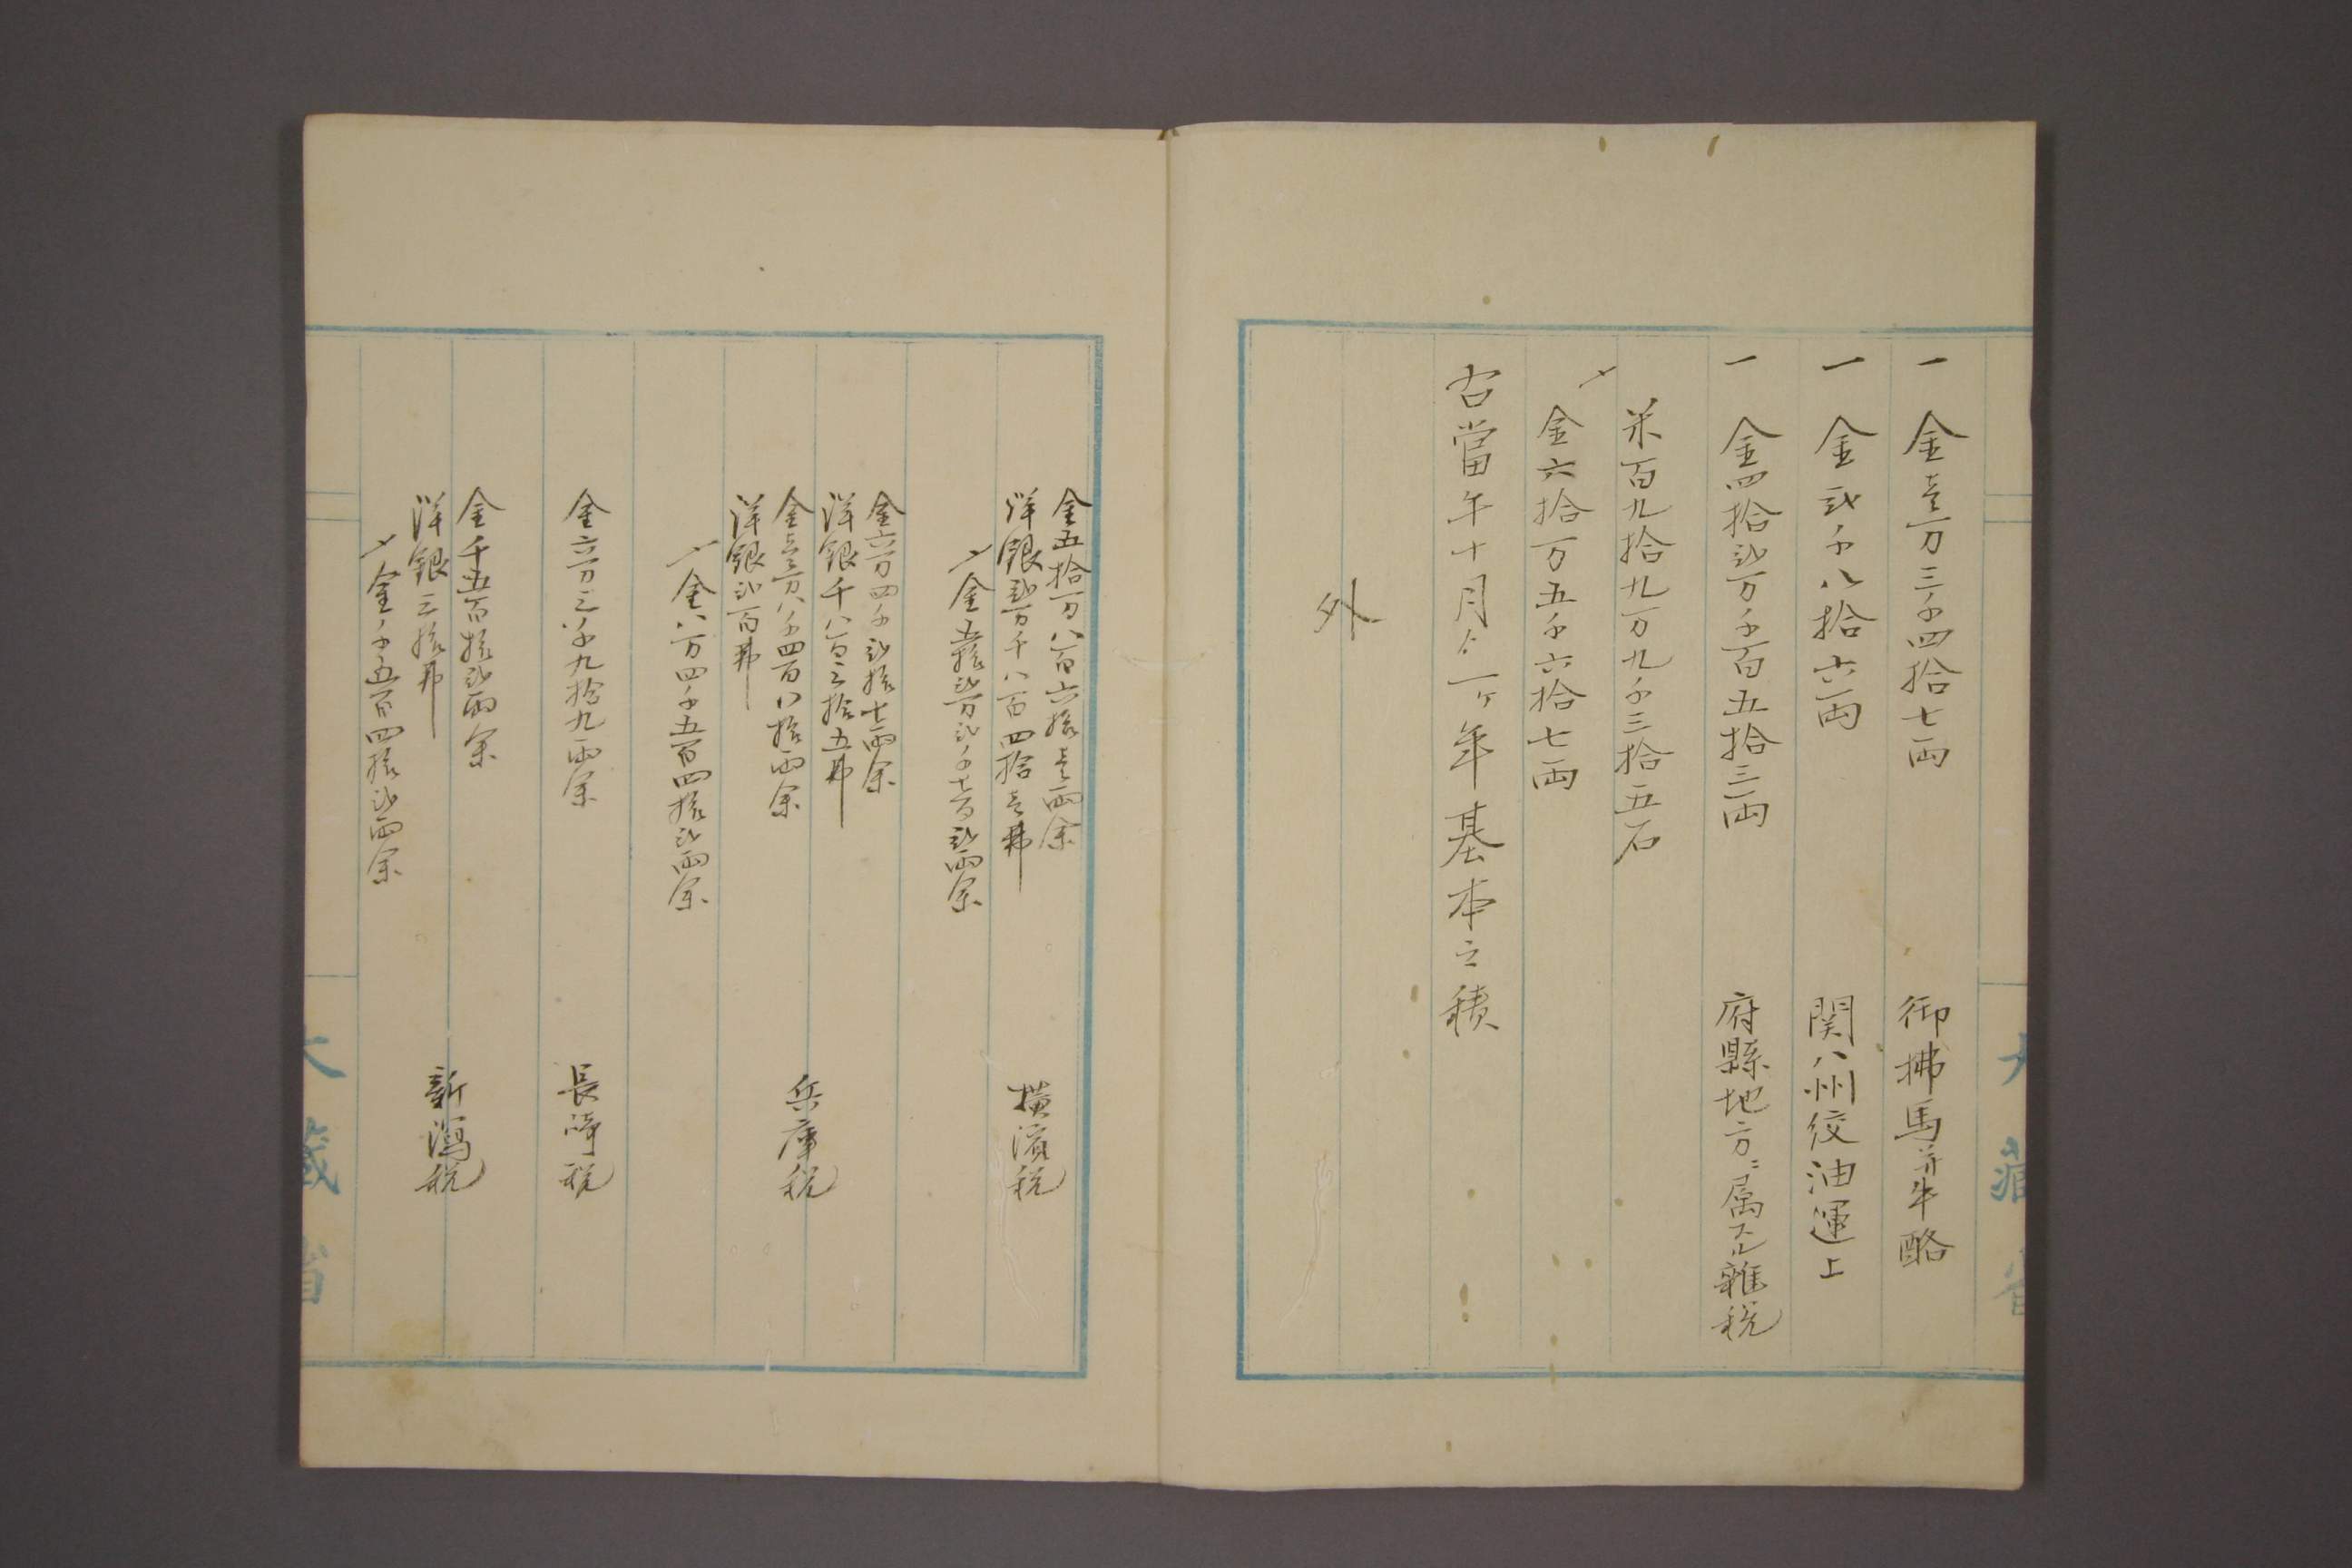 一 金壱万三千四拾七両 御拂馬并牛酪
一 金弐千八拾六両 関八州絞油運上
一 金四拾弐万千百五拾三両 府縣地方ニ属スル雑税
米百九拾九万九千三拾五石
〆
金六拾万五千六拾七両
右當午十月ゟ一ヶ年基本之積
外
金五拾万八百六拾壱両余
洋銀弐万千八百四拾壱弗 横濱税
〆金五拾弐万弐千七百弐両余
金六万四千弐拾七両余
洋銀千八百三拾五弗
金壱万八千四百八拾両余 兵庫税
洋銀弐百弗
〆金八万四千五百四拾弐両余
金六万三千九拾九両余 長崎税
金千五百拾弐両余
洋銀三拾弗 新潟税
〆金千五百四拾弐両余
大藏省